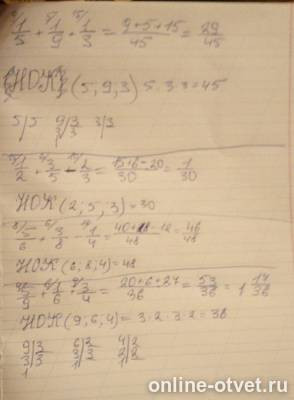 1/5 + 1/9 + 1/3 = 9+5+15/45 = 29/45
НОК (5, 9, 3) 5·3·3=45
5|5 9|3 3|3
3|3
1/2 + 3/5 - 2/3 = 15+6-20/30 = 1/30
НОК (2; 5; 3)=30
5/6 + 3/8 - 1/4 = 48 = 46/48
НОК (6; 8; 4)=48
5/9 + 1/6 + 3/4 = 20+6+27/36 = 53/36 = 1 17/36
НОК (9; 6; 4)= 3·2·3·2=36
9|3 6|2 4|2
3|3 3|3 2|2
1 1 1
online-otvet.ru